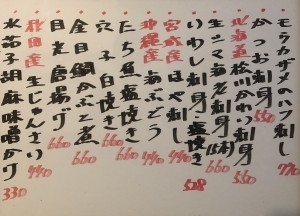 モウカザメのハツ刺し 770
かつお刺身 550
北海道 松川かれい刺身
生シマ海老刺身 660
いわし刺身・塩焼き 528
宮城産 ほや刺し 770
沖縄産 海ぶどう 440
たち魚塩焼き 660
穴子白焼き 660
金目鯛かぶと煮 660
目光唐揚げ 660
秋田産 生じゅんさい 440
水茄子胡麻味噌かけ 330